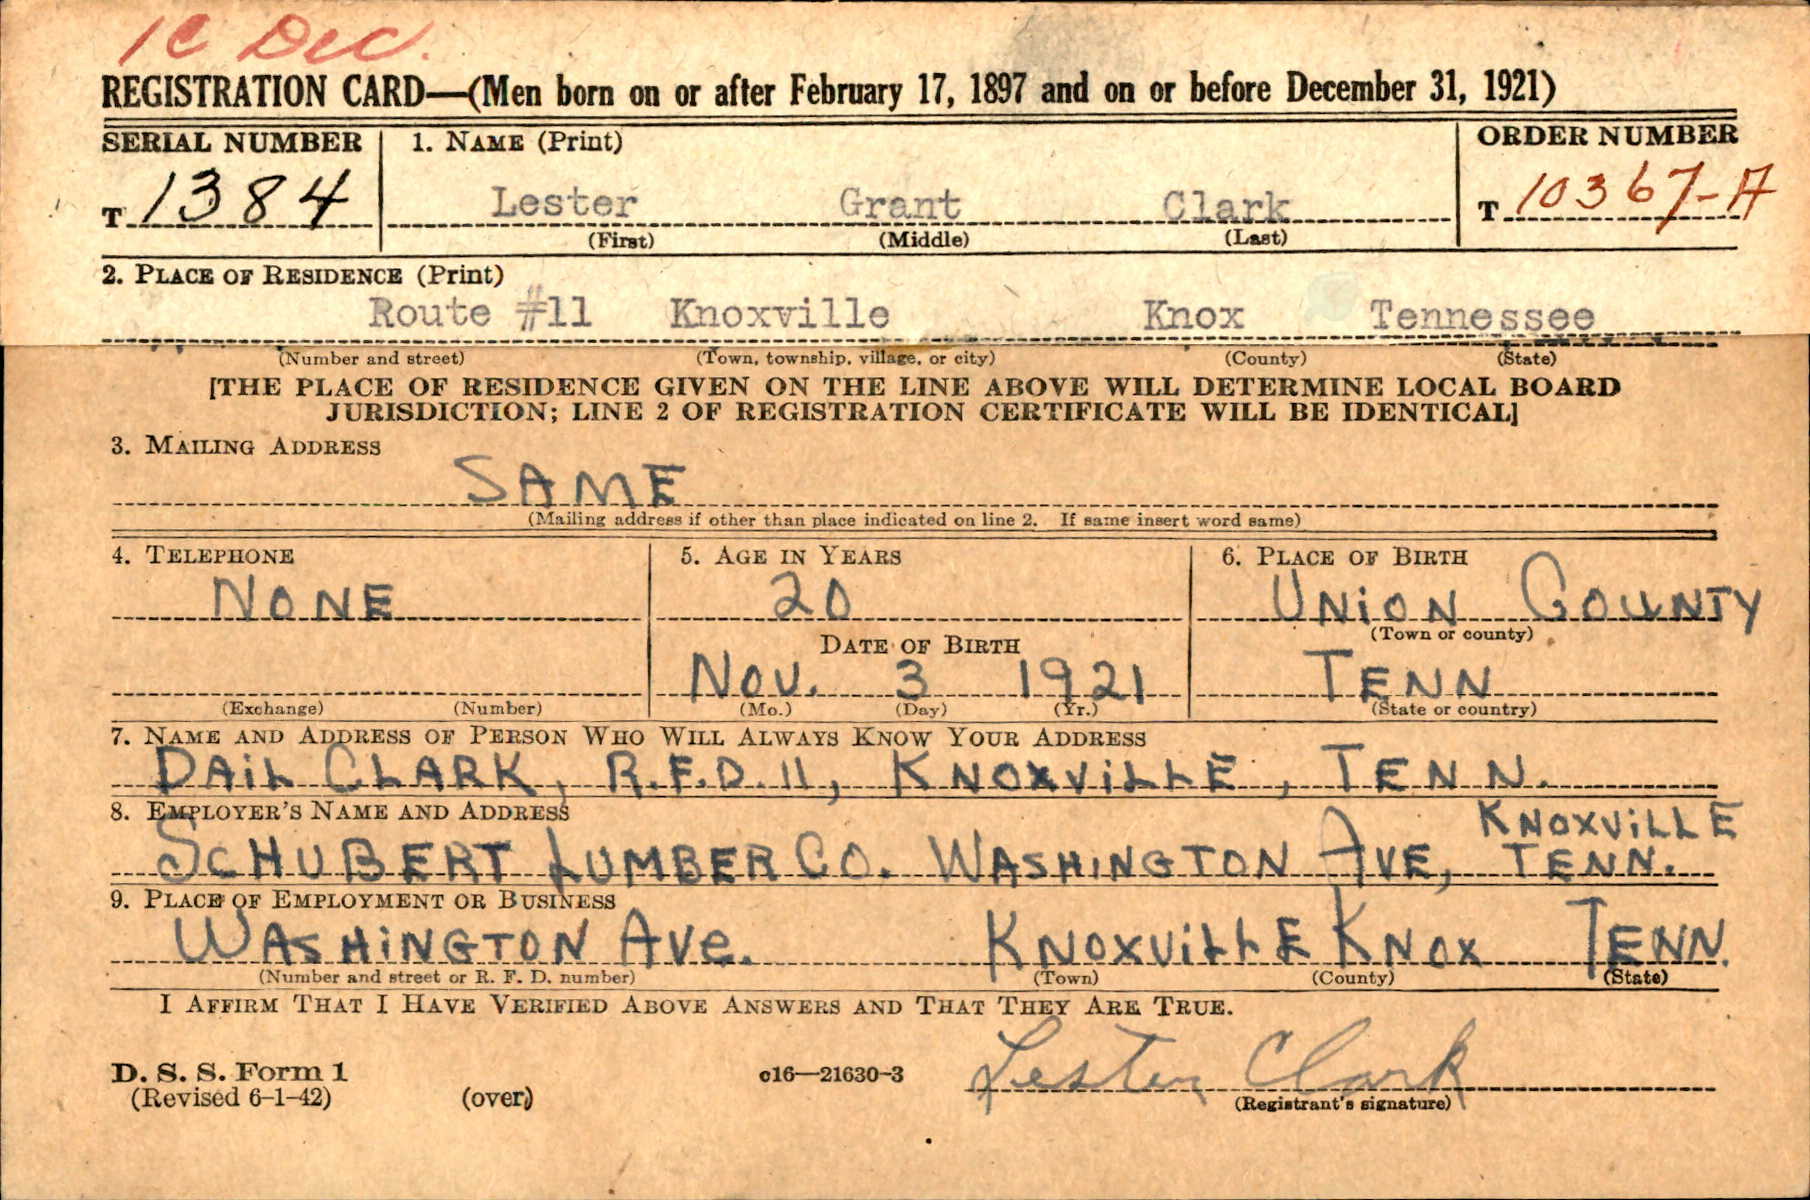 1C Dec.
REGISTRATION CARD—(Men born on or after February 17, 1897 and on or before December 31, 1921)
SERIAL NUMBER 1. NAME (Print) ORDER NUMBER
T 1384 Lester Grant Clark T 10367-A
(First) (Middle) (Last)
2. PLACE OF RESIDENCE (Print)
Route #11 Knoxville Knox Tennessee
(Number and street) (Town, township, village, or city) (County) (State)
[THE PLACE OF RESIDENCE GIVEN ON THE LINE ABOVE WILL DETERMINE LOCAL BOARD
JURISDICTION; LINE 2 OF REGISTRATION CERTIFICATE WILL BE IDENTICAL]
3. MAILING ADDRESS
SAME
(Mailing address if other than place indicated on line 2. If same insert word same)
4. TELEPHONE 5. AGE IN YEARS 6. PLACE OF BIRTH
NONE 20 UNiON COUNTY
(Town or county)
DATE OF BIRTH
NOV. 3 1921 TENN
(Exchange) (Number) (Mo.) (Day) (Yr.) (State or country)
7. NAME AND ADDRESS OF PERSON WHO WILL ALWAYS KNOW YOUR ADDRESS
DAiL CLARK, R.F.D. 11, KNOXViLLE, TENN.
8. EMPLOYER'S NAME AND ADDRESS
KNOXViLLE
SCHUBERT LUMBER CO. WASHiNGTON AVE, TENN.
9. PLACE OF EMPLOYMENT OR BUSINESS
WASHiNGTON AVe. KNOXViLLE KNOX TENN.
(Number and street or R. F. D. number) (Town) (County) (State)
I AFFIRM THAT I HAVE VERIFIED ABOVE ANSWERS AND THAT THEY ARE TRUE.
Lester Clark
D. S. S. Form 1 c16—21630-3
(Revised 6-1-42) (over) (Registrant's signature)